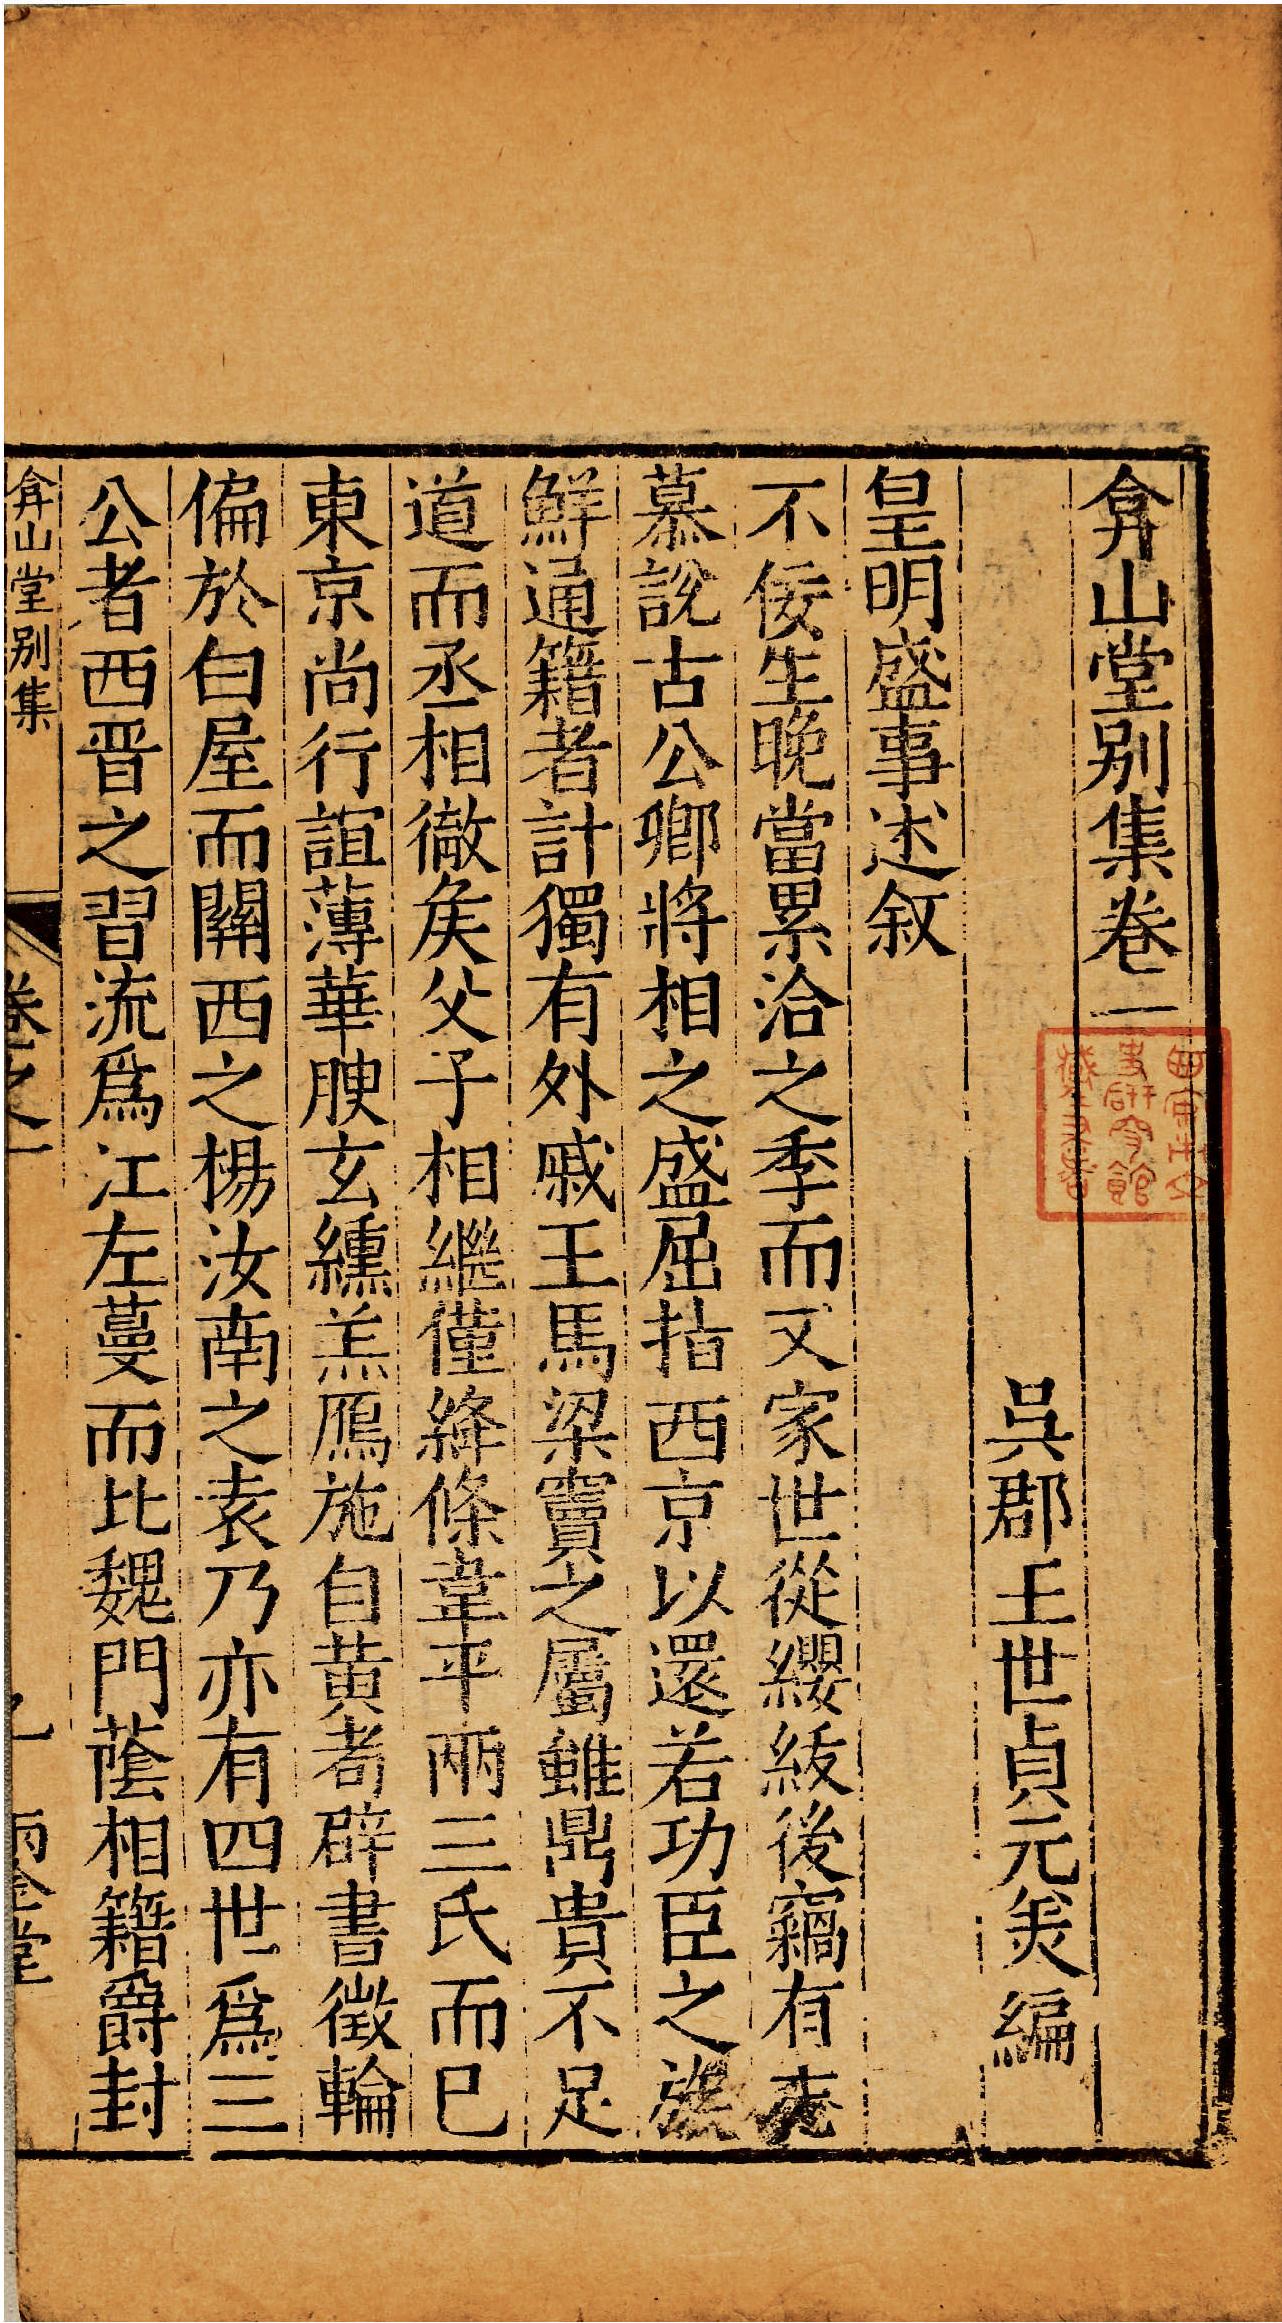 弇山堂別集卷一
吳郡王世貞元美編
皇明盛事述叙
不佞生晚當累洽之季而又家世從纓紱後竊有
慕說古公卿將相之盛屈指西京以還若功臣之族
鮮通籍者計獨有外戚王馬梁竇之屬雖鼎貴不足
道而丞相徹矦父子相繼僅絳條韋平兩三氏而已
東京尚行誼薄華腴玄纁羔鴈施自黃耇辟書徵輪
偏於白屋而關西之楊汝南之袁乃亦有四世爲三
公者西晋之習流爲江左蔓而比魏門蔭相籍爵封
弇山堂別集
卷之一
雨金堂